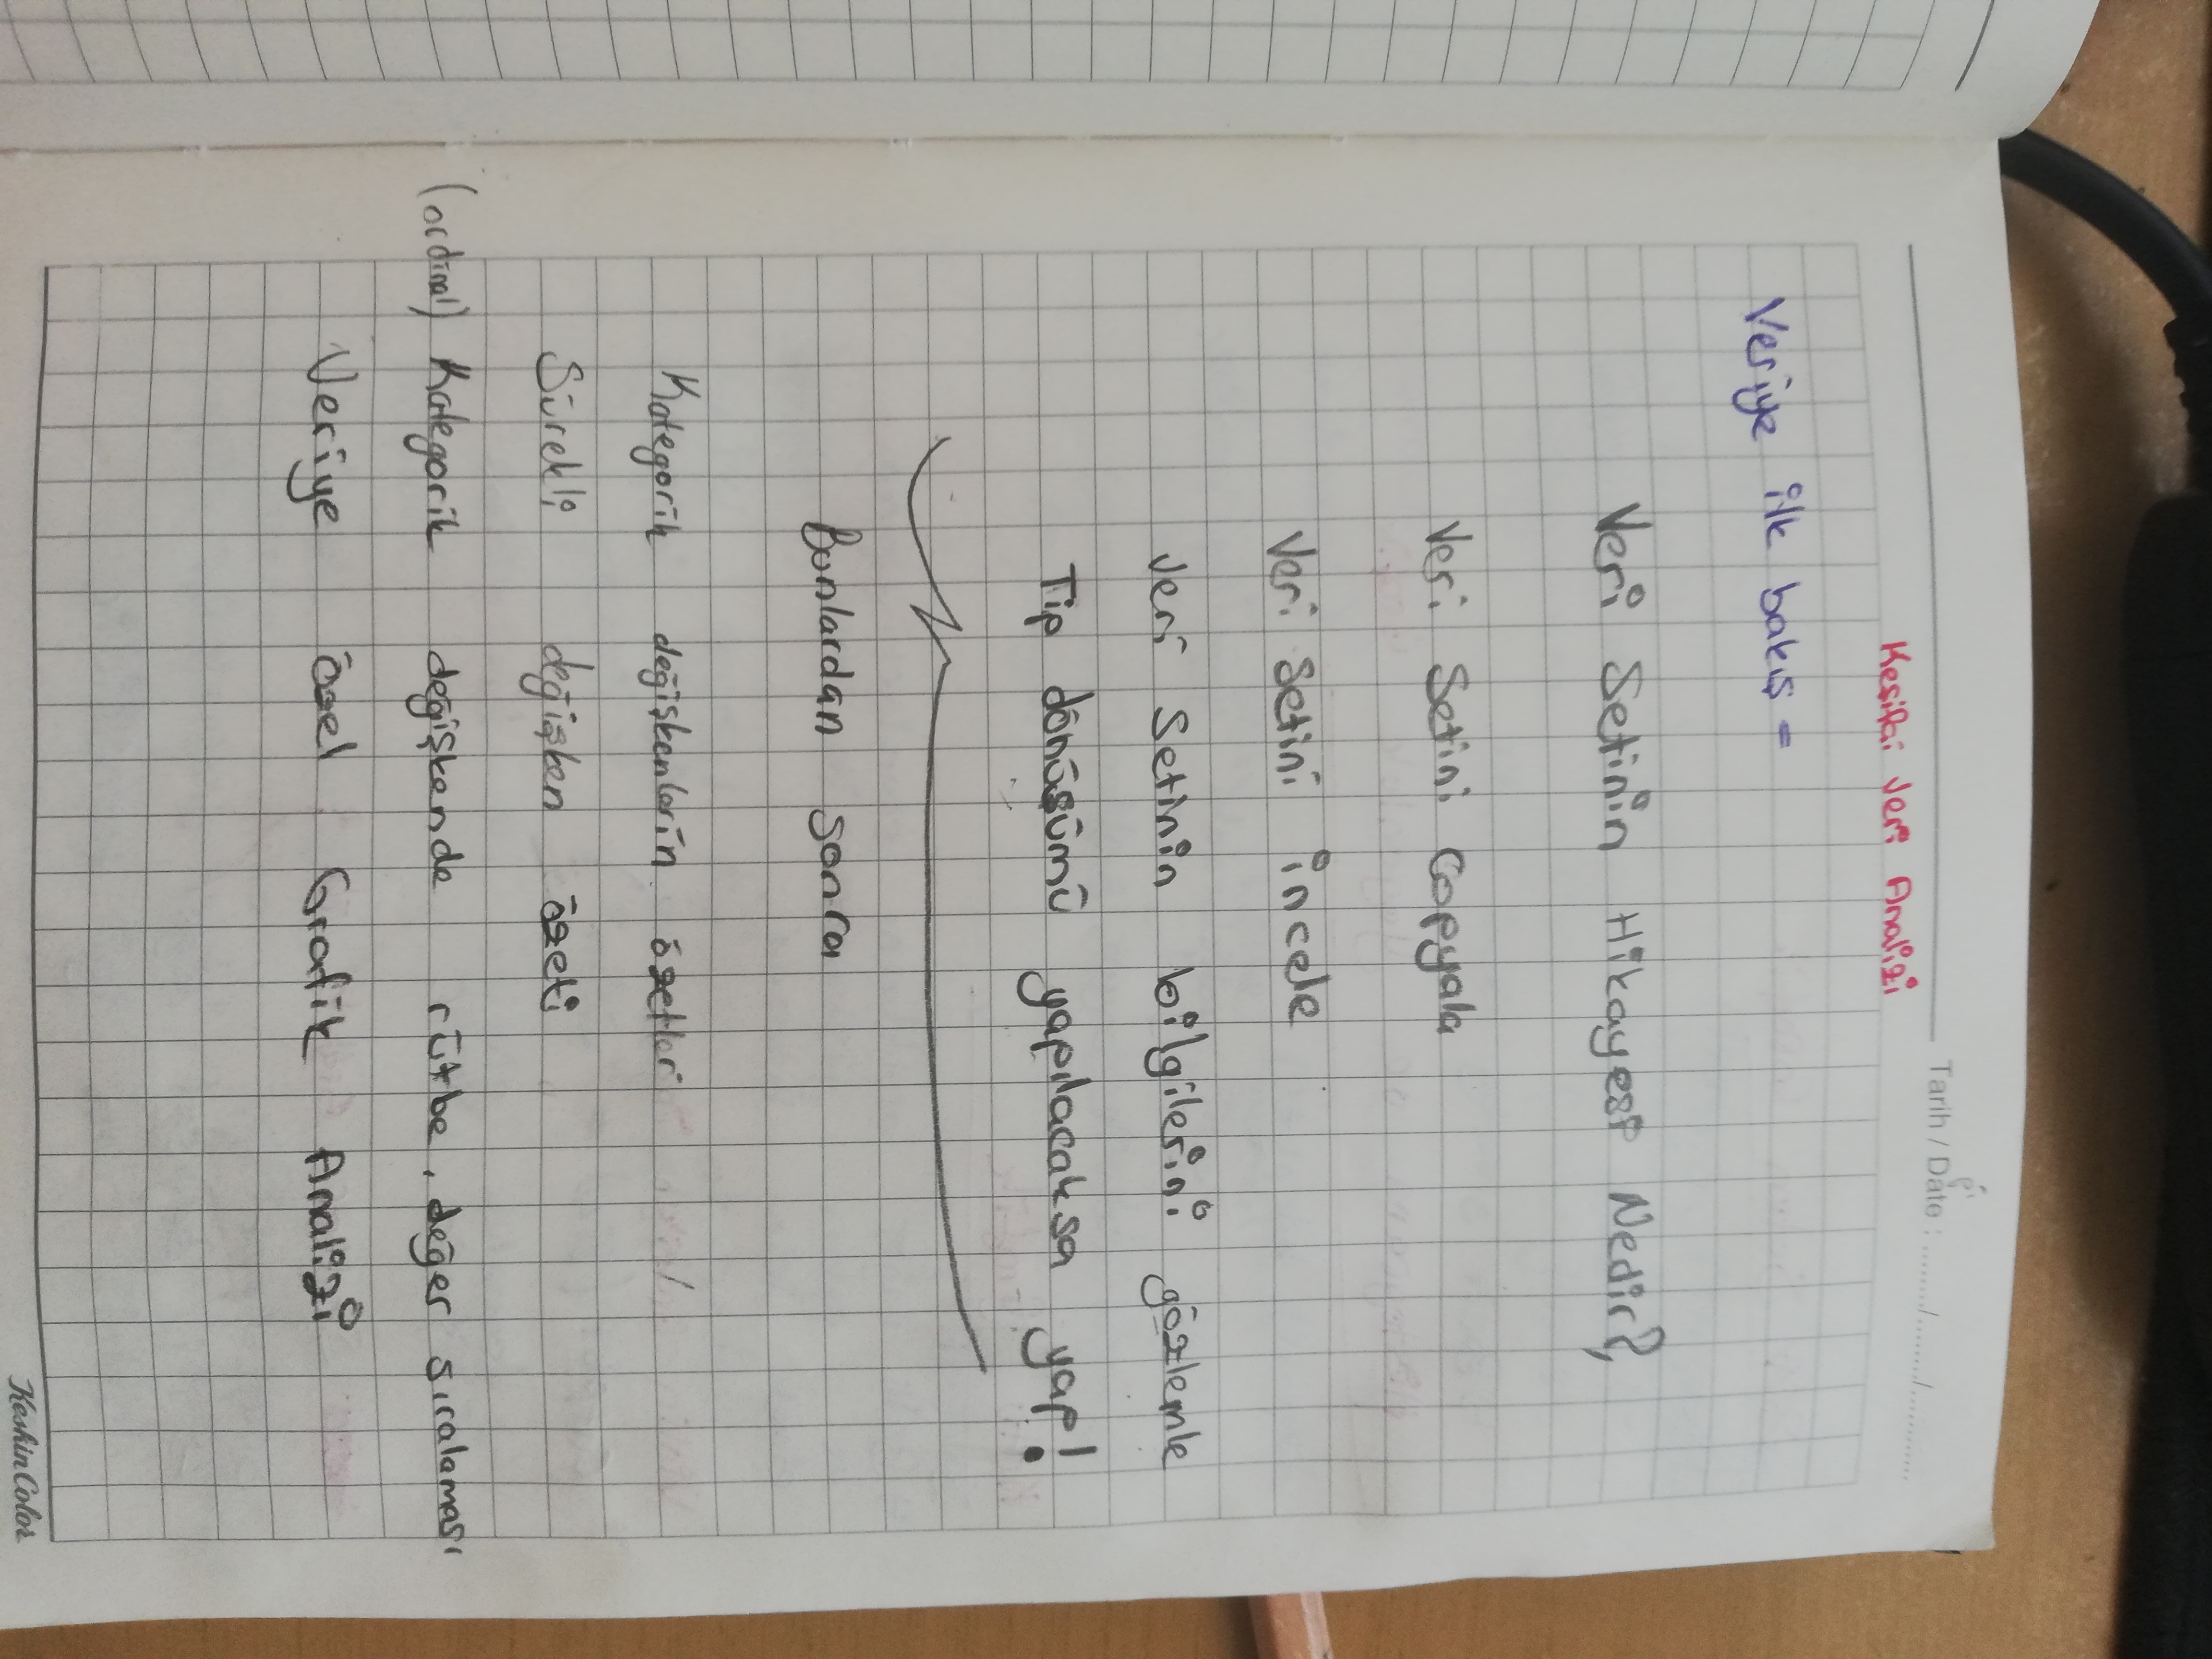 Tarih / Date : ......../......../............
Keşifçi Veri Analizi
Veriye ilk bakış =
Veri Setinin Hikayesi Nedir?,
Veri Setini Copyala
Veri Setini incele
Veri Setinin bilgilerini gözlemle
Tip dönüşümü yapılacaksa yap!
Bunlardan sonra
Kategorik değişkenlerin özetleri
Sürekli değişken özeti
(ordinal) Kategorik değişkende rütbe, değer sıralaması
Veriye özel Grafik Analizi
KeskinColor